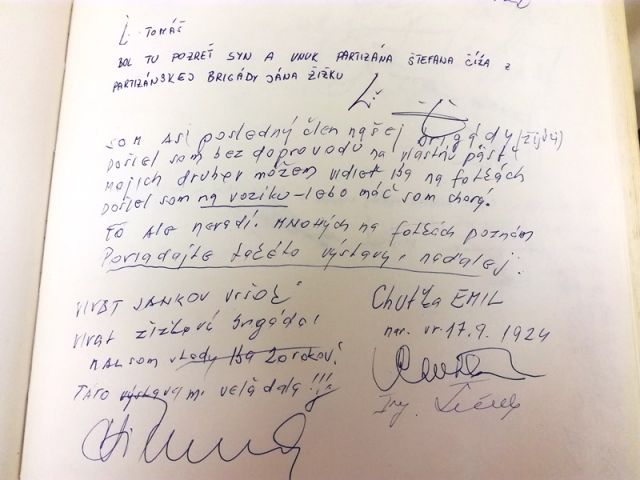 TOMÁŠ
BOL TU POZREŤ SYN A VNUK PARTIZÁNA ŠTEFANA ČÍŽA z
PARTIZÁNSKEJ BRIGÁDY JÁNA ŽIŽKU
SOM ASI posledný člen našej brigády (žijúci)
Došiel som bez doprovodu na vlastnú päsť
Mojich druhov môžem vidieť iba na fotkách
Došiel som na vozíku - lebo máč som chorý.
To ALE nevadí. MNOHÝCH na fotkách poznám
Poriadajte takéto výstavy i naďalej.
VIVAT JANKOV VŔŠOK
Vivat Žižková brigáda!
MAL SOM vtedy iba 20 rokov!
TÁTO výstava mi veľa dala!!!
Chuťka EMIL
nar. 17.9.1924
Ing.